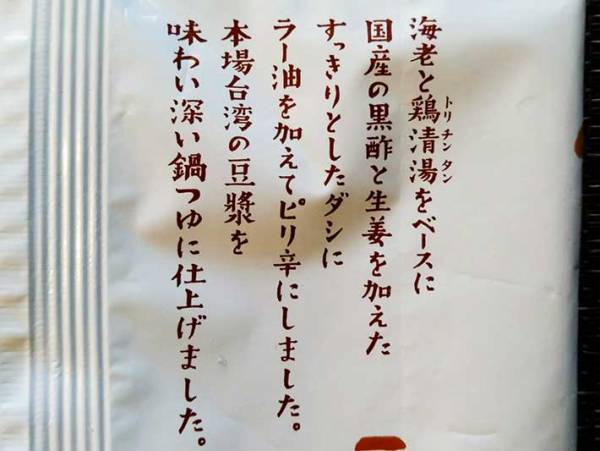 海老と鶏清湯をベースに
トリチンタン
国産の黒酢と生姜を加えた
すっきりとしたダシに
ラー油を加えてピリ辛にしました。
本場台湾の豆漿を
味わい深い鍋つゆに仕上げました。